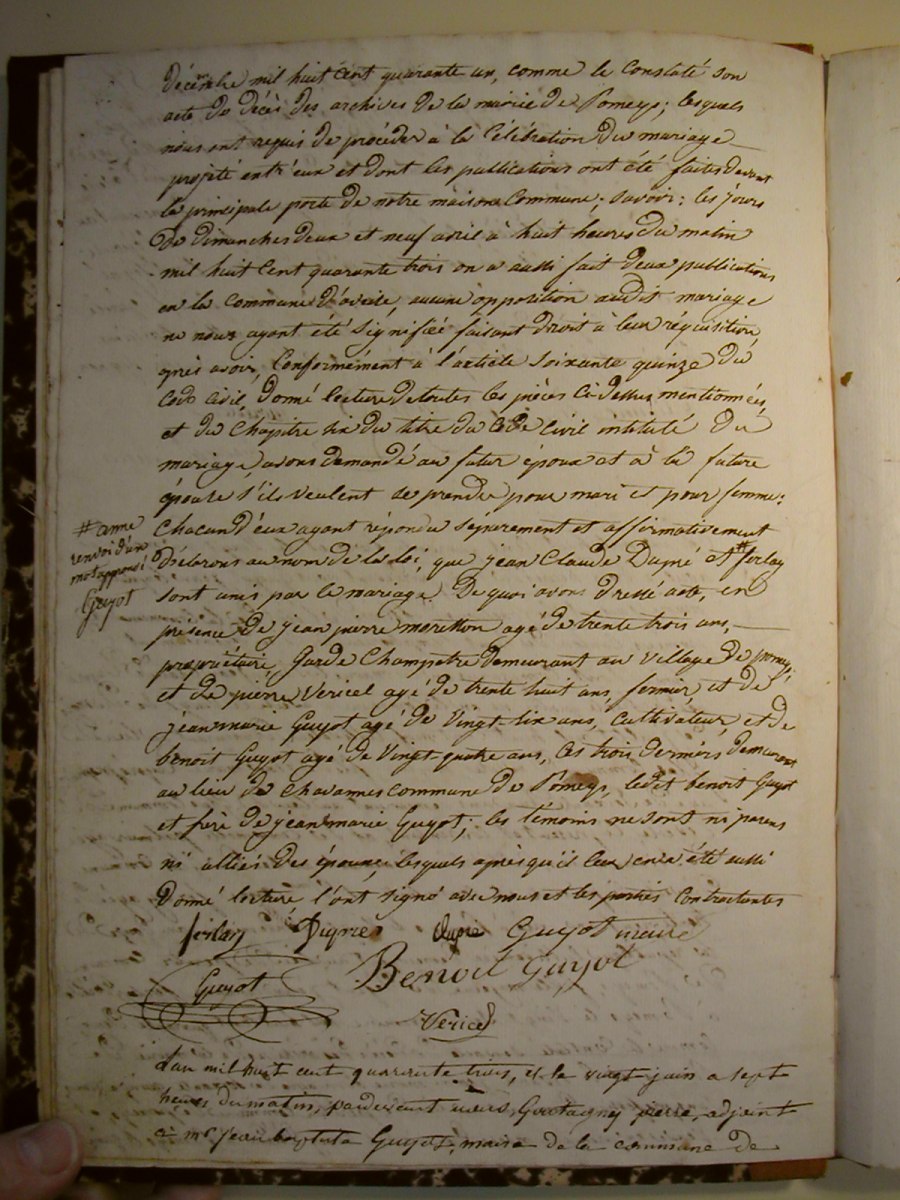 décembre mil huit cent quarante un, comme le constaté son
acte de décès des archives de la mairie de Pomeys; lesquels
nous ont requis de procéder à la Célébration du mariage
projeté entr'eux et dont les publications ont été faites devant
la principale porte de notre maison Commune; Savoir: les jours
de dimanches deux et neuf avril à huit heures du matin
mil huit Cent quarante trois on a aussi fait deux publications
en la commune d'aveize, aucune opposition audit mariage
ne nous ayant été signifiée faisant droit à leur réquisition,
après avoir, Conformément à l'article soixante quinze du
Code Civil donné lecture de toutes les pièces Ci-dessus mentionnées,
et du Chapitre six du titre du Code Civil intitulé du
mariage, avons demandé au futur époux et à la future
épouse s'ils veulent se prendre pour mari et pour femme:
Chacun d'eux ayant répondu séparement et affirmativement
déclarons au nom de la loi, que jean Claude Dupré et # ferlay
# anne
renvoi d'un
mot approuvé
Guyot
sont unis par le mariage. De quoi avons dressé acte, en
présence de jean pierre moretton agé de trente trois ans,
propriétaire, Garde Champetre demeurant au village de pomeys
et de pierre Vericel agé de trente huit ans, fermier, et de
jean marie Guyot agé de Vingt six ans, Cultivateur, et de
benoit Guyot agé de Vingt quatre ans, Ces trois derniers demeurant
au lieu de Chavannes commune de Pomeys, ledit benoit Guyot
et frère de jean marie Guyot; les témoins ne sont ni parens
ni alliés des époux, lesquels après qu'il leur en a été aussi
donné lecture l'ont signé avec nous et les parties Contractantes
ferlay Dupre dupré Guyot maire
Guyot Benoit Guyot
Vericel
L'an mil huit cent quarante trois, et le vingt juin a sept
heures du matin, pardevant nous, Goutagny pierre, adjoint
a mr jean baptiste Guyot, maire de la commune de